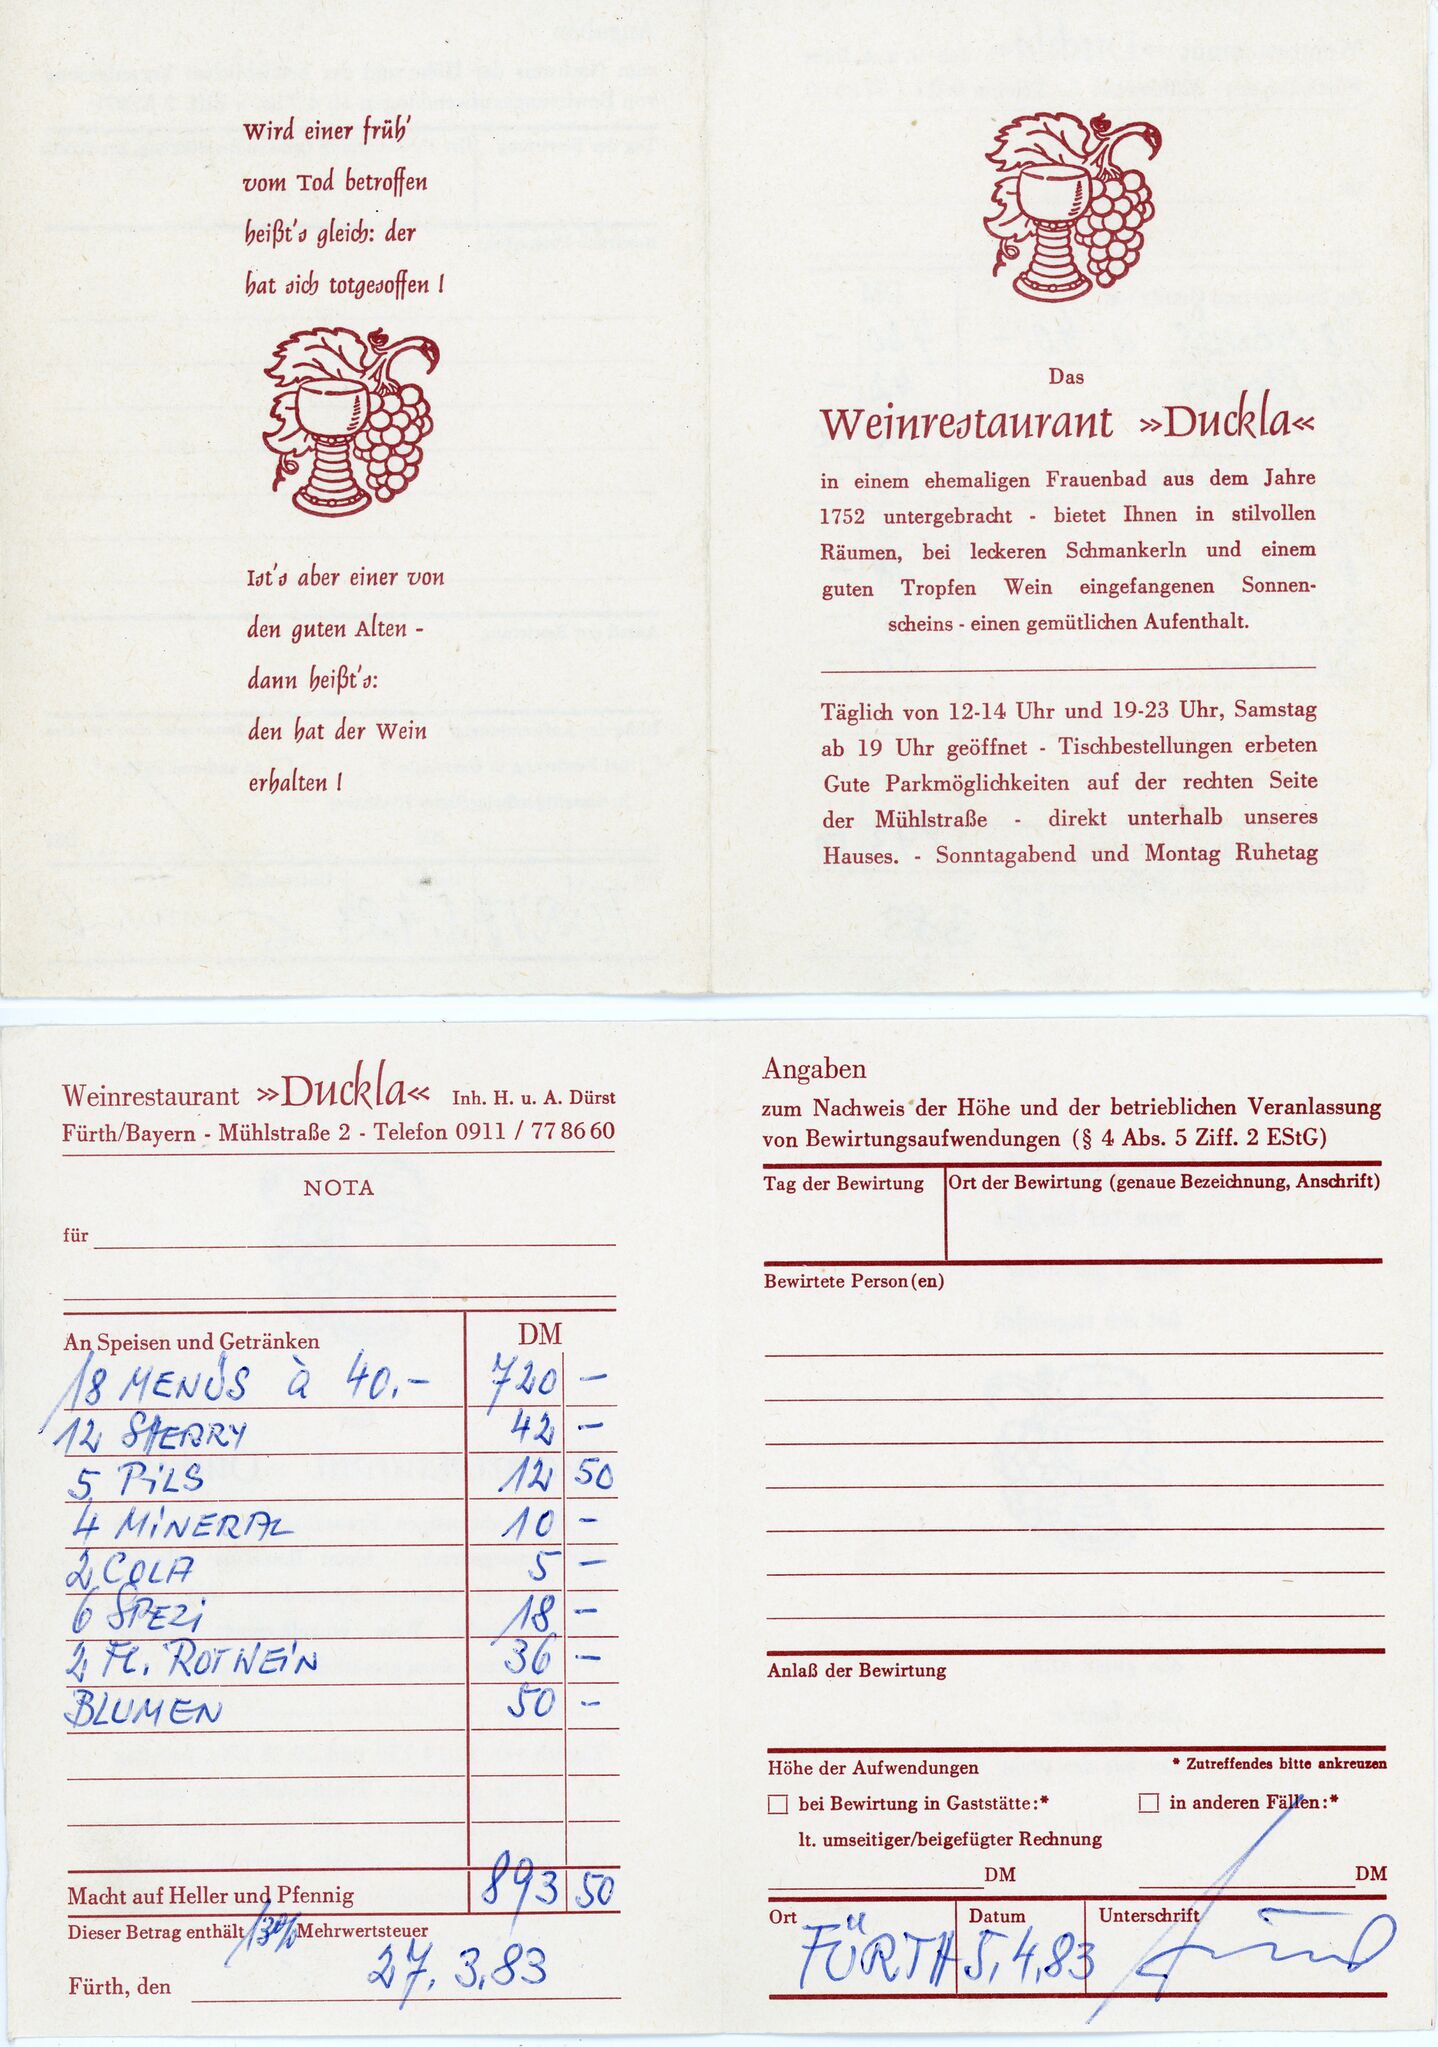 Wird einer früh'
vom Tod betroffen
heißt's gleich: der
hat sich totgesoffen !
Ist's aber einer von
den guten Alten -
dann heißt's:
den hat der Wein
erhalten !
Das
Weinrestaurant »Duckla«
in einem ehemaligen Frauenbad aus dem Jahre
1752 untergebracht - bietet Ihnen in stilvollen
Räumen, bei leckeren Schmankerln und einem
guten Tropfen Wein eingefangenen Sonnen-
scheins - einen gemütlichen Aufenthalt.
Täglich von 12-14 Uhr und 19-23 Uhr, Samstag
ab 19 Uhr geöffnet - Tischbestellungen erbeten
Gute Parkmöglichkeiten auf der rechten Seite
der Mühlstraße - direkt unterhalb unseres
Hauses. - Sonntagabend und Montag Ruhetag
Weinrestaurant »Duckla« Inh. H. u. A. Dürst
Fürth/Bayern - Mühlstraße 2 - Telefon 0911 / 77 86 60
NOTA
für
An Speisen und Getränken DM
18 MENÜS à 40.- 720 -
12 SHERRY 42 -
5 PILS 12 50
4 MINERAL 10 -
2 COLA 5 -
6 SPEZI 18 -
2 Fl. ROTWEIN 36 -
BLUMEN 50 -
Macht auf Heller und Pfennig 893 50
Dieser Betrag enthält 13% Mehrwertsteuer
Fürth, den 27.3.83
Angaben
zum Nachweis der Höhe und der betrieblichen Veranlassung
von Bewirtungsaufwendungen (§ 4 Abs. 5 Ziff. 2 EStG)
Tag der Bewirtung Ort der Bewirtung (genaue Bezeichnung, Anschrift)
Bewirtete Person(en)
Anlaß der Bewirtung
Höhe der Aufwendungen * Zutreffendes bitte ankreuzen
bei Bewirtung in Gaststätte:* in anderen Fällen:*
lt. umseitiger/beigefügter Rechnung
DM DM
Ort Datum Unterschrift
FÜRTH 5.4.83